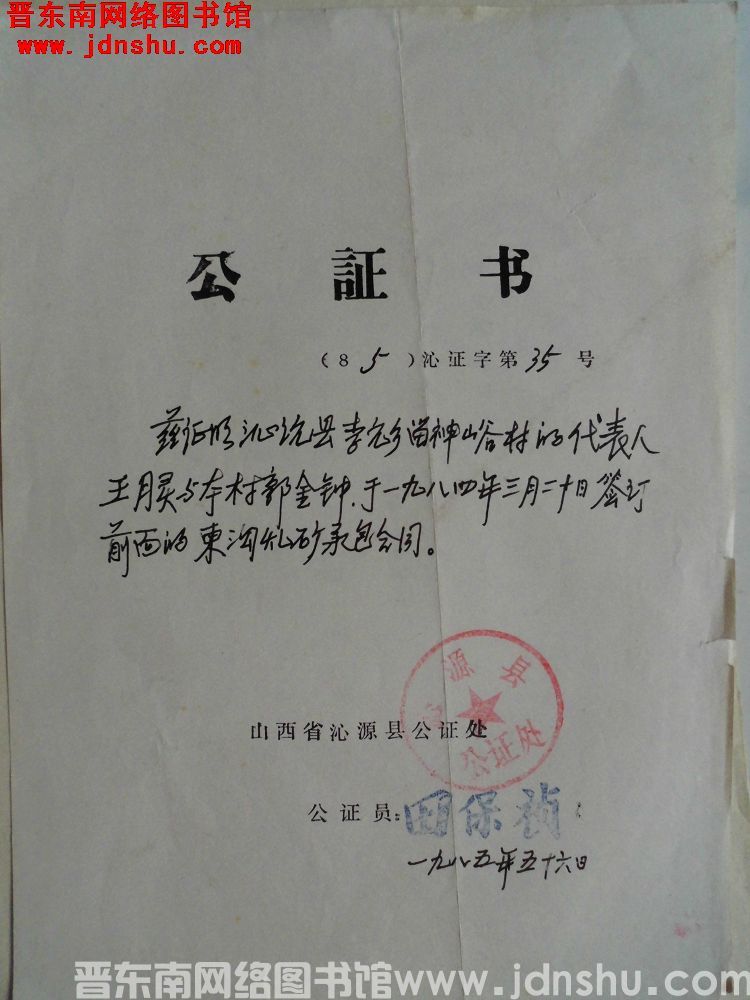 晋东南网络图书馆
www.jdnshu.com
公 証 书
（85）沁证字第35号
兹证明沁沅县李元乡留神峪村的代表人
王月灵与本村郭金钟、于一九八四年三月二十日签订
前面的東沟礼砂承包合同。
沁源县
公证处
山西省沁源县公证处
公证员：田保祯
一九八五年五十六日
晋东南网络图书馆www.jdnshu.com